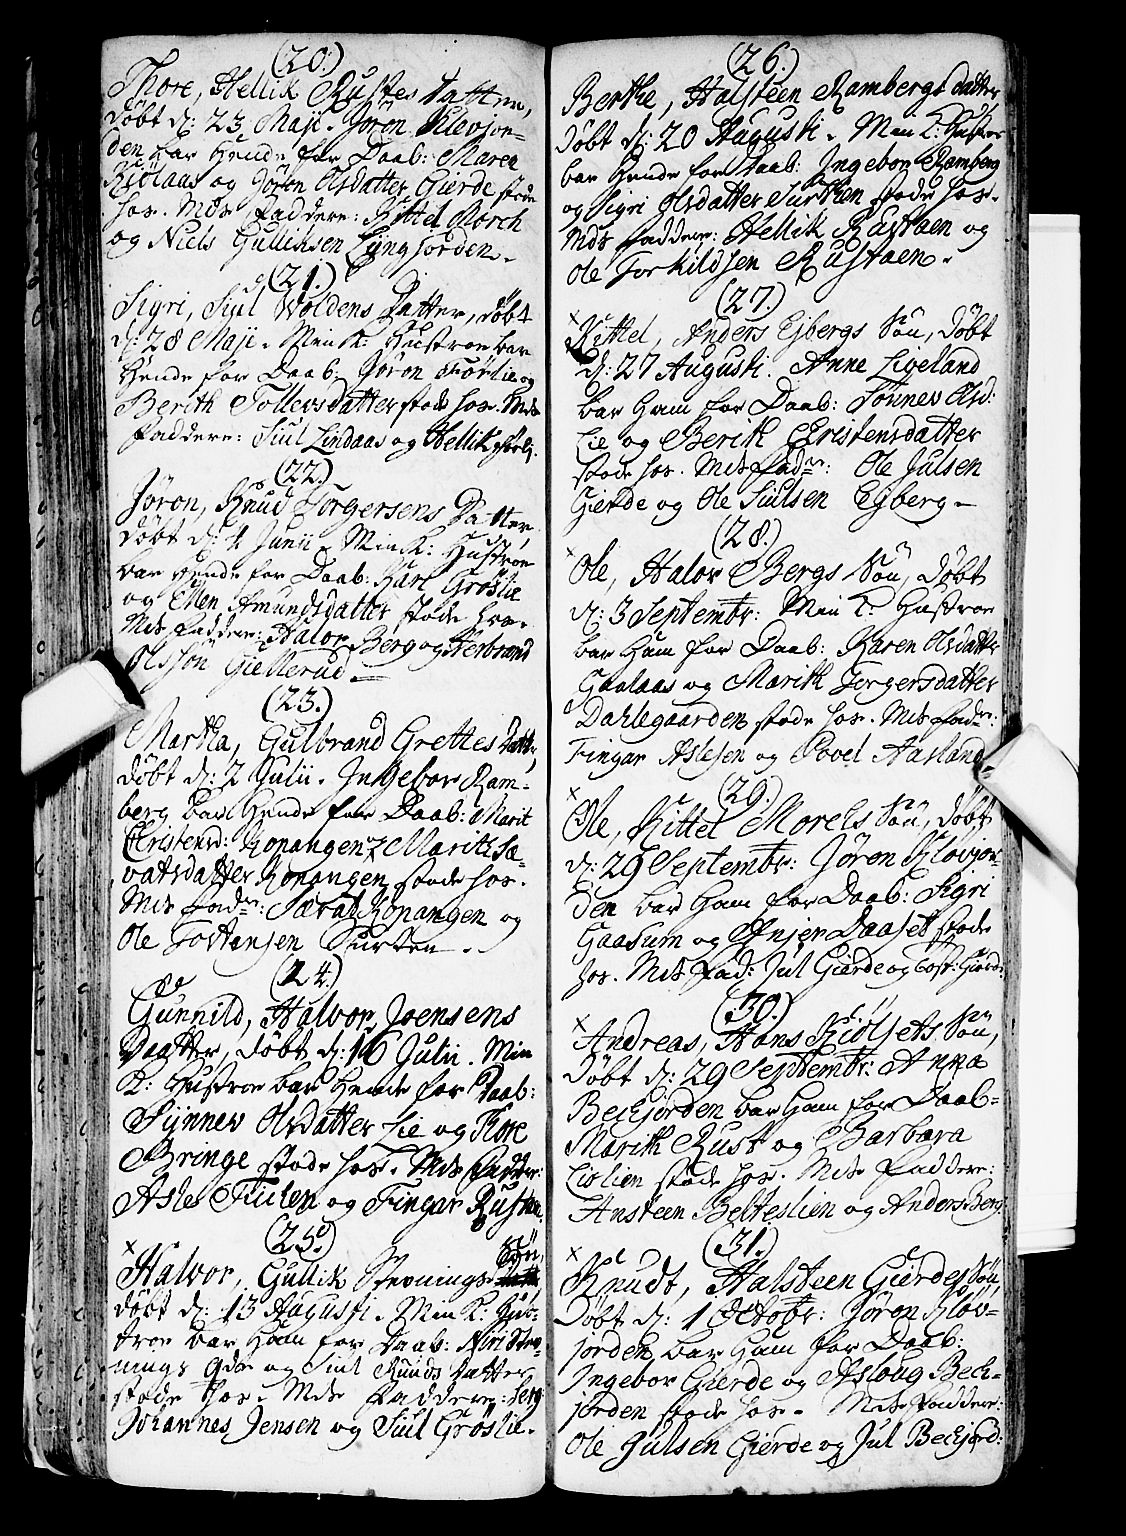 (20.)
Thore, Hellik Rustes Datter,
døbt d: 23 Maji. Jøron Klevjor-
den bar Hende for Daab: Maren
Kiølaas og Jøron Olsdatter Gierde stode
hos. Mds Faddere: Kittel Morch
og Niels Gulliksen Lyngjorden.
(21.)
Sigri, Siul Woldens Datter, døbt
d: 28 Maji. Min K: Hustroe bar
Hende for Daab: Jøron Førlie og
Berith Tollevsdatter stode hos. Mds
Faddere: Siul Lindaas og Hellik
(22.)
Jøron, Knud Torgersens Datter
døbt d: 4 Junii. Min K: Hustroe
bar Hende for Daab: Kari Groslie
og Ellen Amundsdatter stode hos.
Mds Faddere: Halvor Berg og Herbrand
Olsøn Giellerud.
(23.)
Martha, Gulbrand Grettes Datter,
døbt d: 2 Julii. Ingebor Ram-
berg bar Hende for Daab: Marit
Christensd: Kopangen og Marith Sæ-
vatsdatter Kopangen stode hos.
Mds Fadre: Sævat Kopangen og
Ole Tostensen Surten.
(24.)
Gunnild, Halvor Joensens
Daatter, døbt d: 16 Julii. Min
K: Hustroe bar Hende for Daab:
Synnev Olsdatter Lie og Thore
Bringe stode hos. Mds Fadder:
Asle Tiulen og Fingar Rusten.
(25.)
x
Halvor, Gullik Stevnings Søn,
døbt d: 13 Augusti. Min K: Hus-
troe bar Ham for Daab: Siri Stev-
nings og Siul Knuds Datter
stode hos. Mds Faddere: Serg
Johannes Jensen og Siul Groslie.
(26.)
Berthe, Halsteen Rambergs datter
døbt d: 20 Augusti. Min K: Hustroe
bar Hende for Daab: Ingebor Ramberg
og Sigri Olsdatter Surteen stode hos.
Mds Faddere: Hellik Rustaen og
Ole Torkildsen Rustaen.
(27.)
x
Kittel, Anders Ejbergs Søn, døbt
d: 27 Augusti. Anne Ligeland
bar Ham for Daab: Tønnev Olsd:
Lie og Berith Christensdatter
stode hos. Mds Fadre: Ole Julsen
Gierde og Ole Siulsen Ejberg.
(28.)
x
Ole, Halvor Bergs Søn, døbt
d: 3 Septembr: Min K: Hustroe
bar Ham for Daab: Karen Olsdatter
Gaalaas og Marith Torgersdatter
Dahlegaarden stode hos. Mds Fadre:
Fingar Aslesen og Povel Aasland.
(29.)
x
Ole, Kittel Morchs Søn, døbt
d: 29 Septembr: Jøren Klovjor-
den bar Ham for Daab: Sigri
Gaasum og Anjer Daaset stode
hos. Mds Fad: Jul Gierde og Tost: Gierde
(30.)
x
Andreas, Hans Kiølsets Søn,
døbt d: 29 Septembr: Anna
Beckjorden bar Ham for Daab-
Marith Rust og Barbara
Lislien stode hos. Mds Faddere:
Ansteen Belteslien og Anders Berg
(31.)
x
Knudt, Halsteen Gierdes Søn,
Døbt d: 1 Octobr: Jøron Kløv-
jorden bar Ham for Daab:
Ingebor Gierde og Asloug Beck-
jorden stode hos. Mds Faddere:
Ole Julsen Gierde og Jul Beckjord: